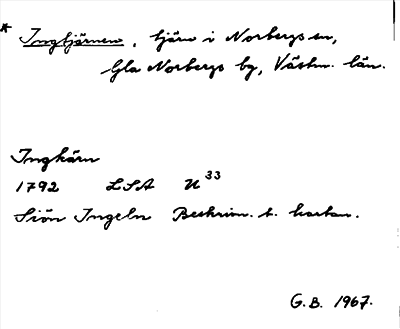 * Ingtjärnen, tjärn i Norbergs sn,
Gla Norbergs bg, Västm. län.
Ingkärn
1792 LSA U³³
Siön Ingeln Beskrivn. t. kartan.
G.B. 1967.